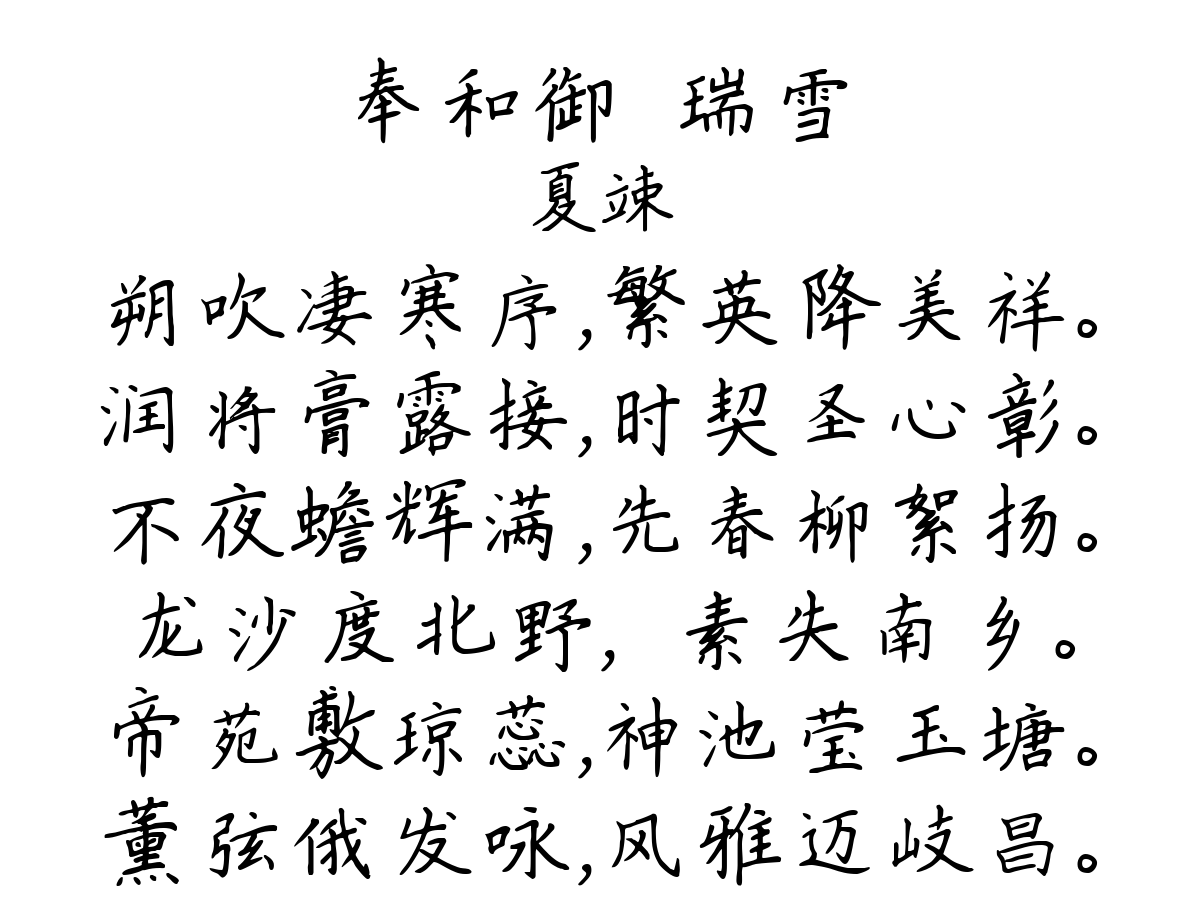 奉和御 瑞雪
夏竦
朔吹凄寒序,繁英降美祥。
润将膏露接,时契圣心彰。
不夜蟾辉满,先春柳絮扬。
龙沙度北野, 素失南乡。
帝苑敷琼蕊,神池莹玉塘。
薰弦俄发咏,风雅迈岐昌。